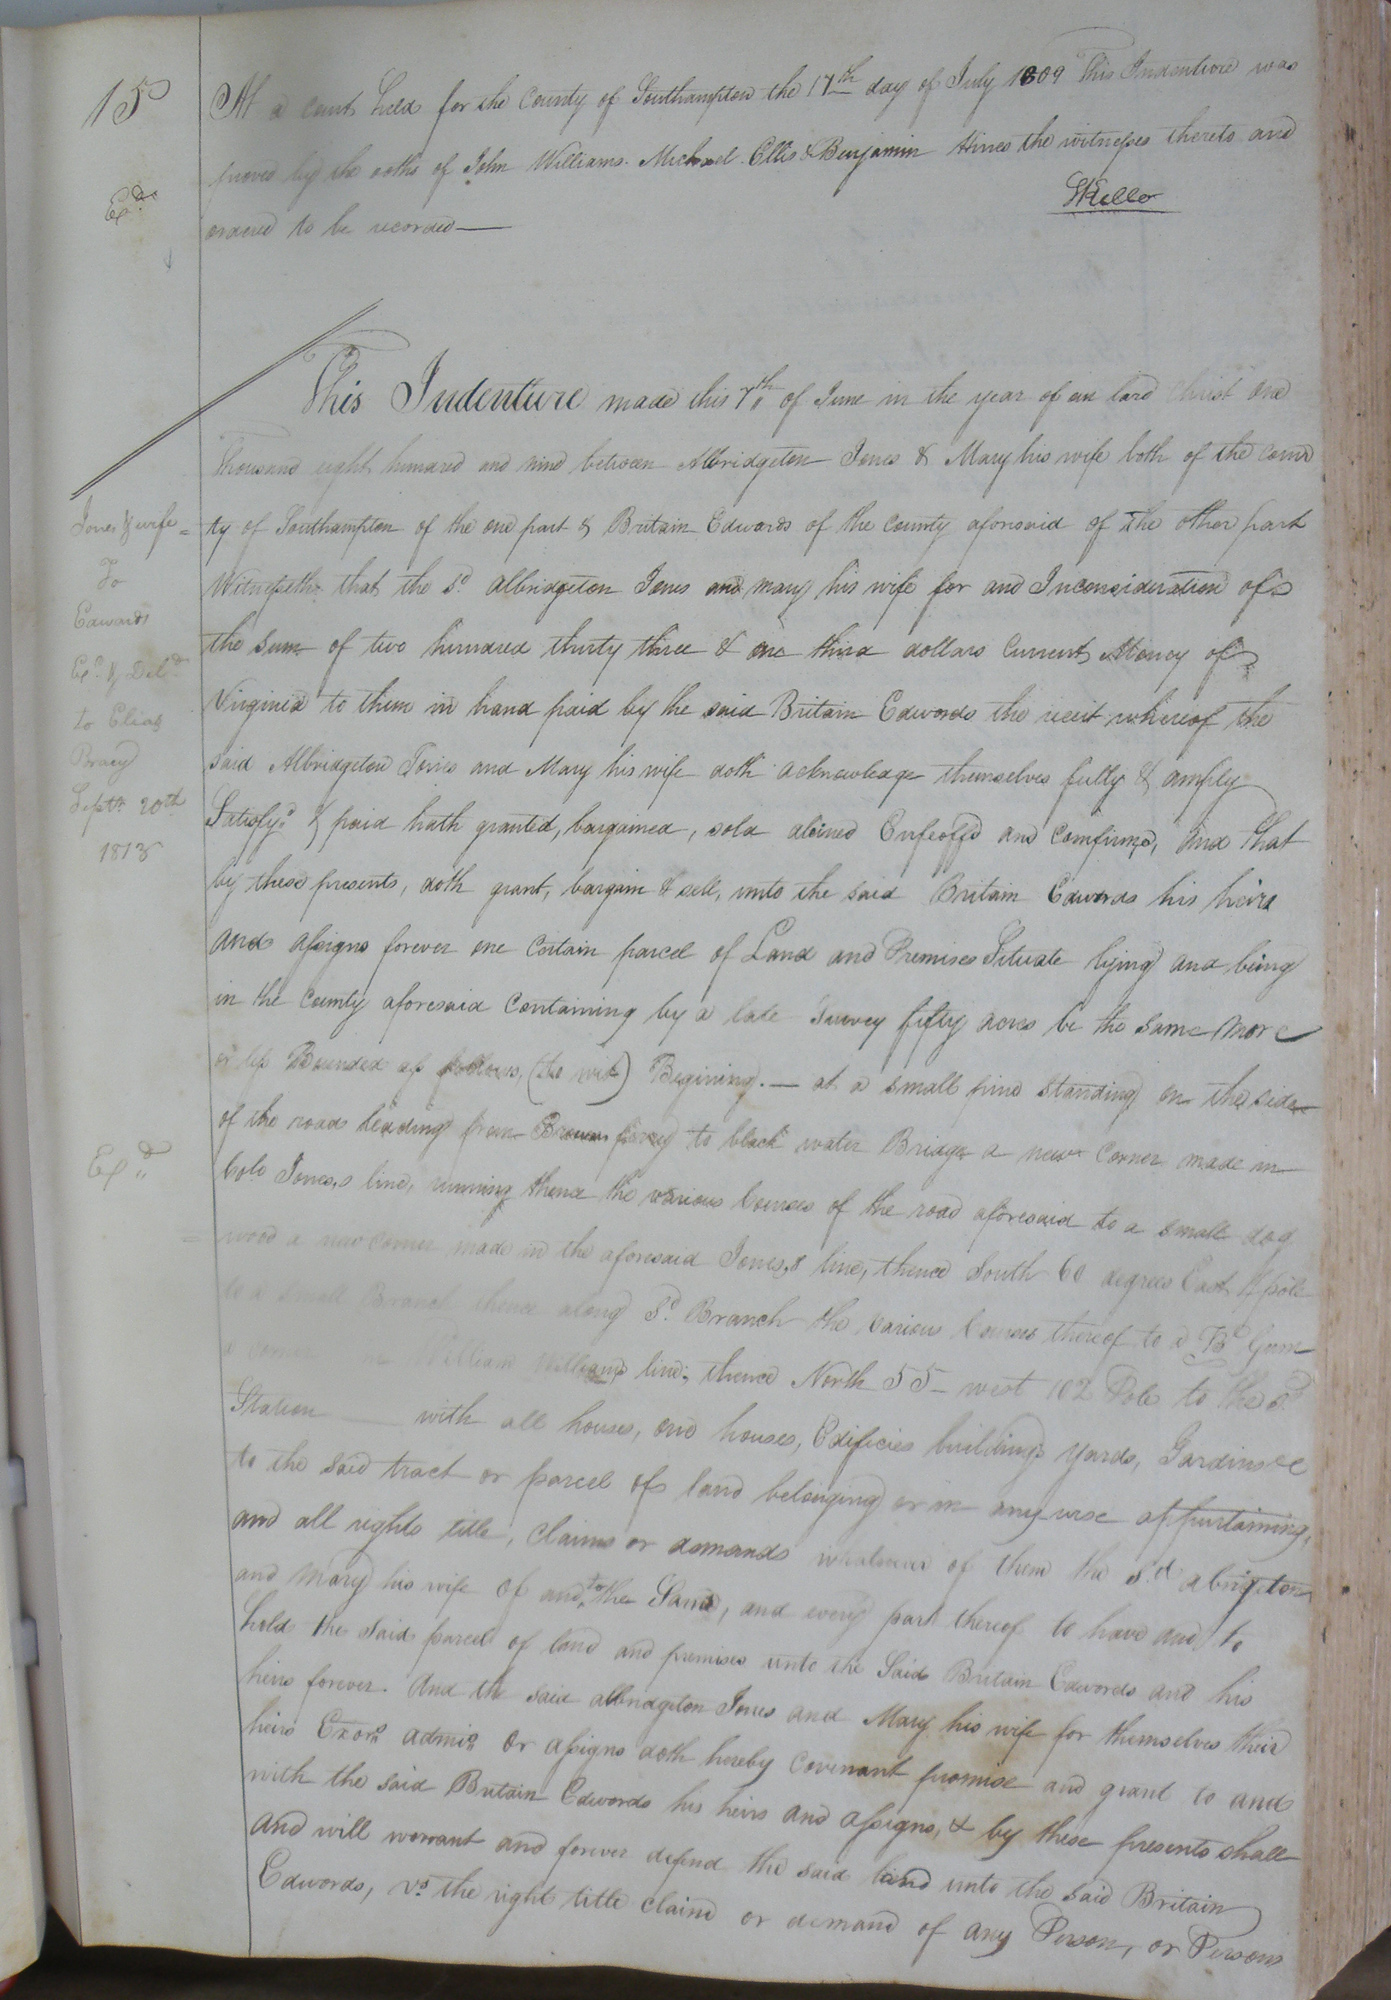 15
At a court held for the County of Southampton the 17th day of July 1809 This Indenture was
proved by the oaths of John Williams Michael Ellis & Benjamin Hines the witnesses thereto and
Exd.
ordered to be recorded—
SKello
This Indenture made this 7th of June in the year of our lord Christ one
Thousand eight hundred and nine between Albridgeton Jones & Mary his wife both of the coun
Jones & wife =
To
Edwards
Exd. & Deld.
to Elias
Bracy
Septr. 20th
1813
ty of Southampton of the one part & Britain Edwards of the county aforesaid of the other part
Witnesseth that the sd. albridgeton Jones and mary his wife for and Inconsideration of
the sum of two hundred thirty three & one third dollars Current Money of
Virginia to them in hand paid by the said Britain Edwards the receit whereof the
said Albridgeton Jones and Mary his wife doth acknowledge themselves fully & amply
Satisfyd. & paid hath granted, bargained, sold aliened Enfeoffd and comfirmd, and that
by these presents, doth grant, bargain & sell, unto the said Britain Edwards his heirs
and assigns forever one Certain parcel of Land and Premises Situate lying and being
in the county aforesaid Containing by a late Survey fifty acres be the same more
or less Bounded as follows, (to wit) Begining.— at a small pine standing on the side
of the road leading from Browns ferry to black water Bridge a new Corner made in
Exd.
Cole Jones,s line, running thence the various Courses of the road aforesaid to a small dog
= wood a new Corner made in the aforesaid Jones,s line, thence South 60 degrees East pole
to a small Branch thence along sd. Branch the various Courses thereof to a Bd Gum
a corner in William Williams line; thence North 55— west 102 Pole to the sd.
Station — with all houses, ond houses, Edificies buildings yards, Gardins &c
to the said tract or parcel of land belonging or in any wise appurtaining,
and all rights title, claims or demands whatever of them the s.d abrigeton
and Mary his wife of and to the Same, and every part thereof to have and to
hold the said parcel of land and premises unto the Said Britain Edwards and his
heirs forever. And the said albridgeton Jones and Mary his wife for themselves their
heirs Exors. admis. or assigns doth hereby Covenant promise and grant to and
with the said Britain Edwards his heirs and assigns, & by these presents shall
and will warrant and forever defend the said land unto the said Britain
Edwards, vs. the right title claim or demand of any Person, or Persons